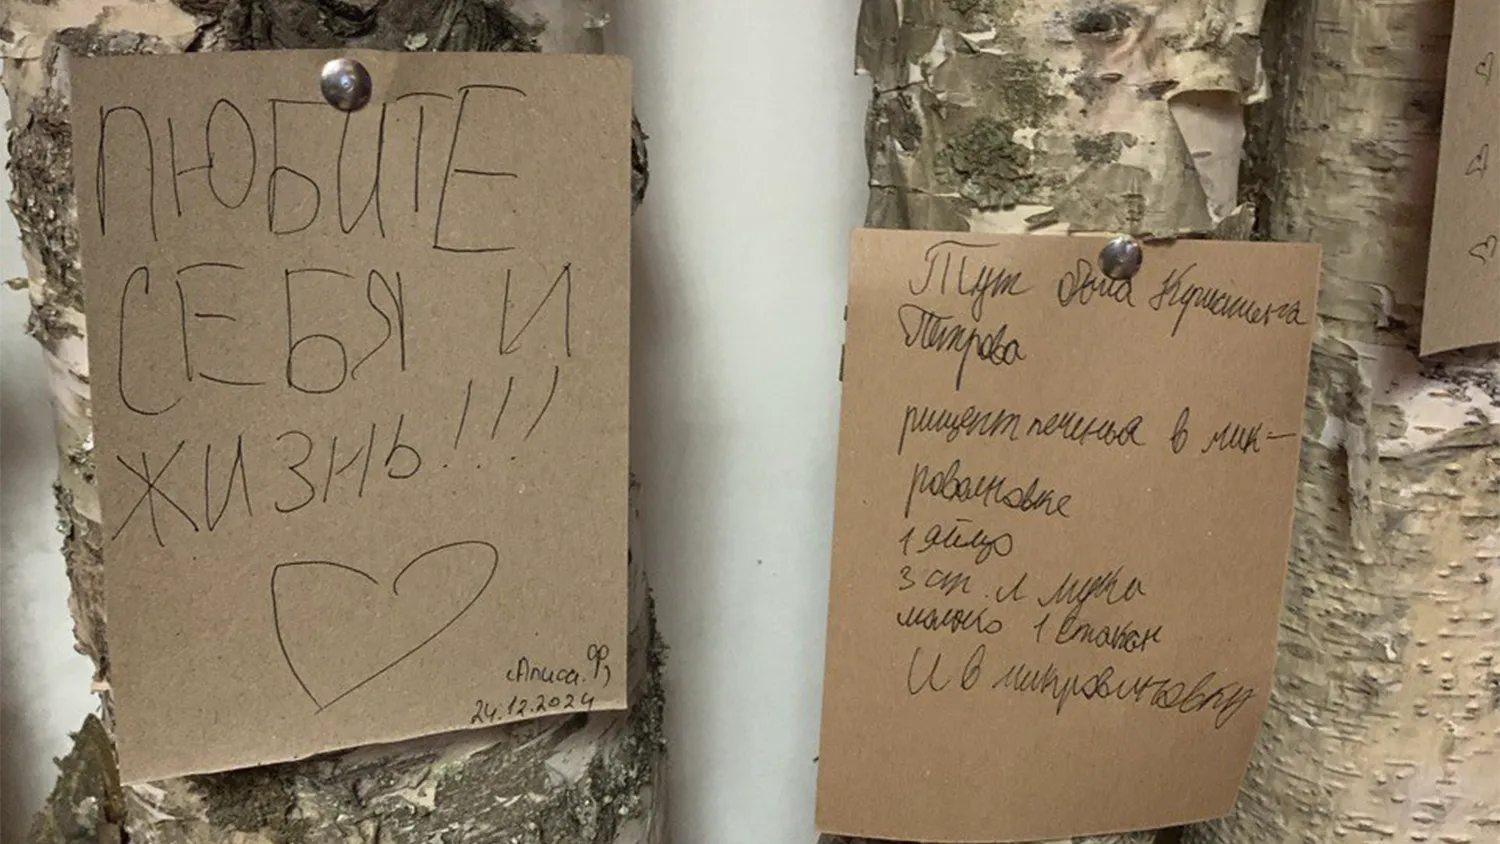 ЛЮБИТЕ
СЕБЯ И
ЖИЗНЬ!!!
(Алиса.Ф)
24.12.2024
Тут была Кристина
Петрова
рицепт печенья в мик-
роволновке
1 яйцо
3 ст. л мука
молоко 1 стакан
И в микроволновку